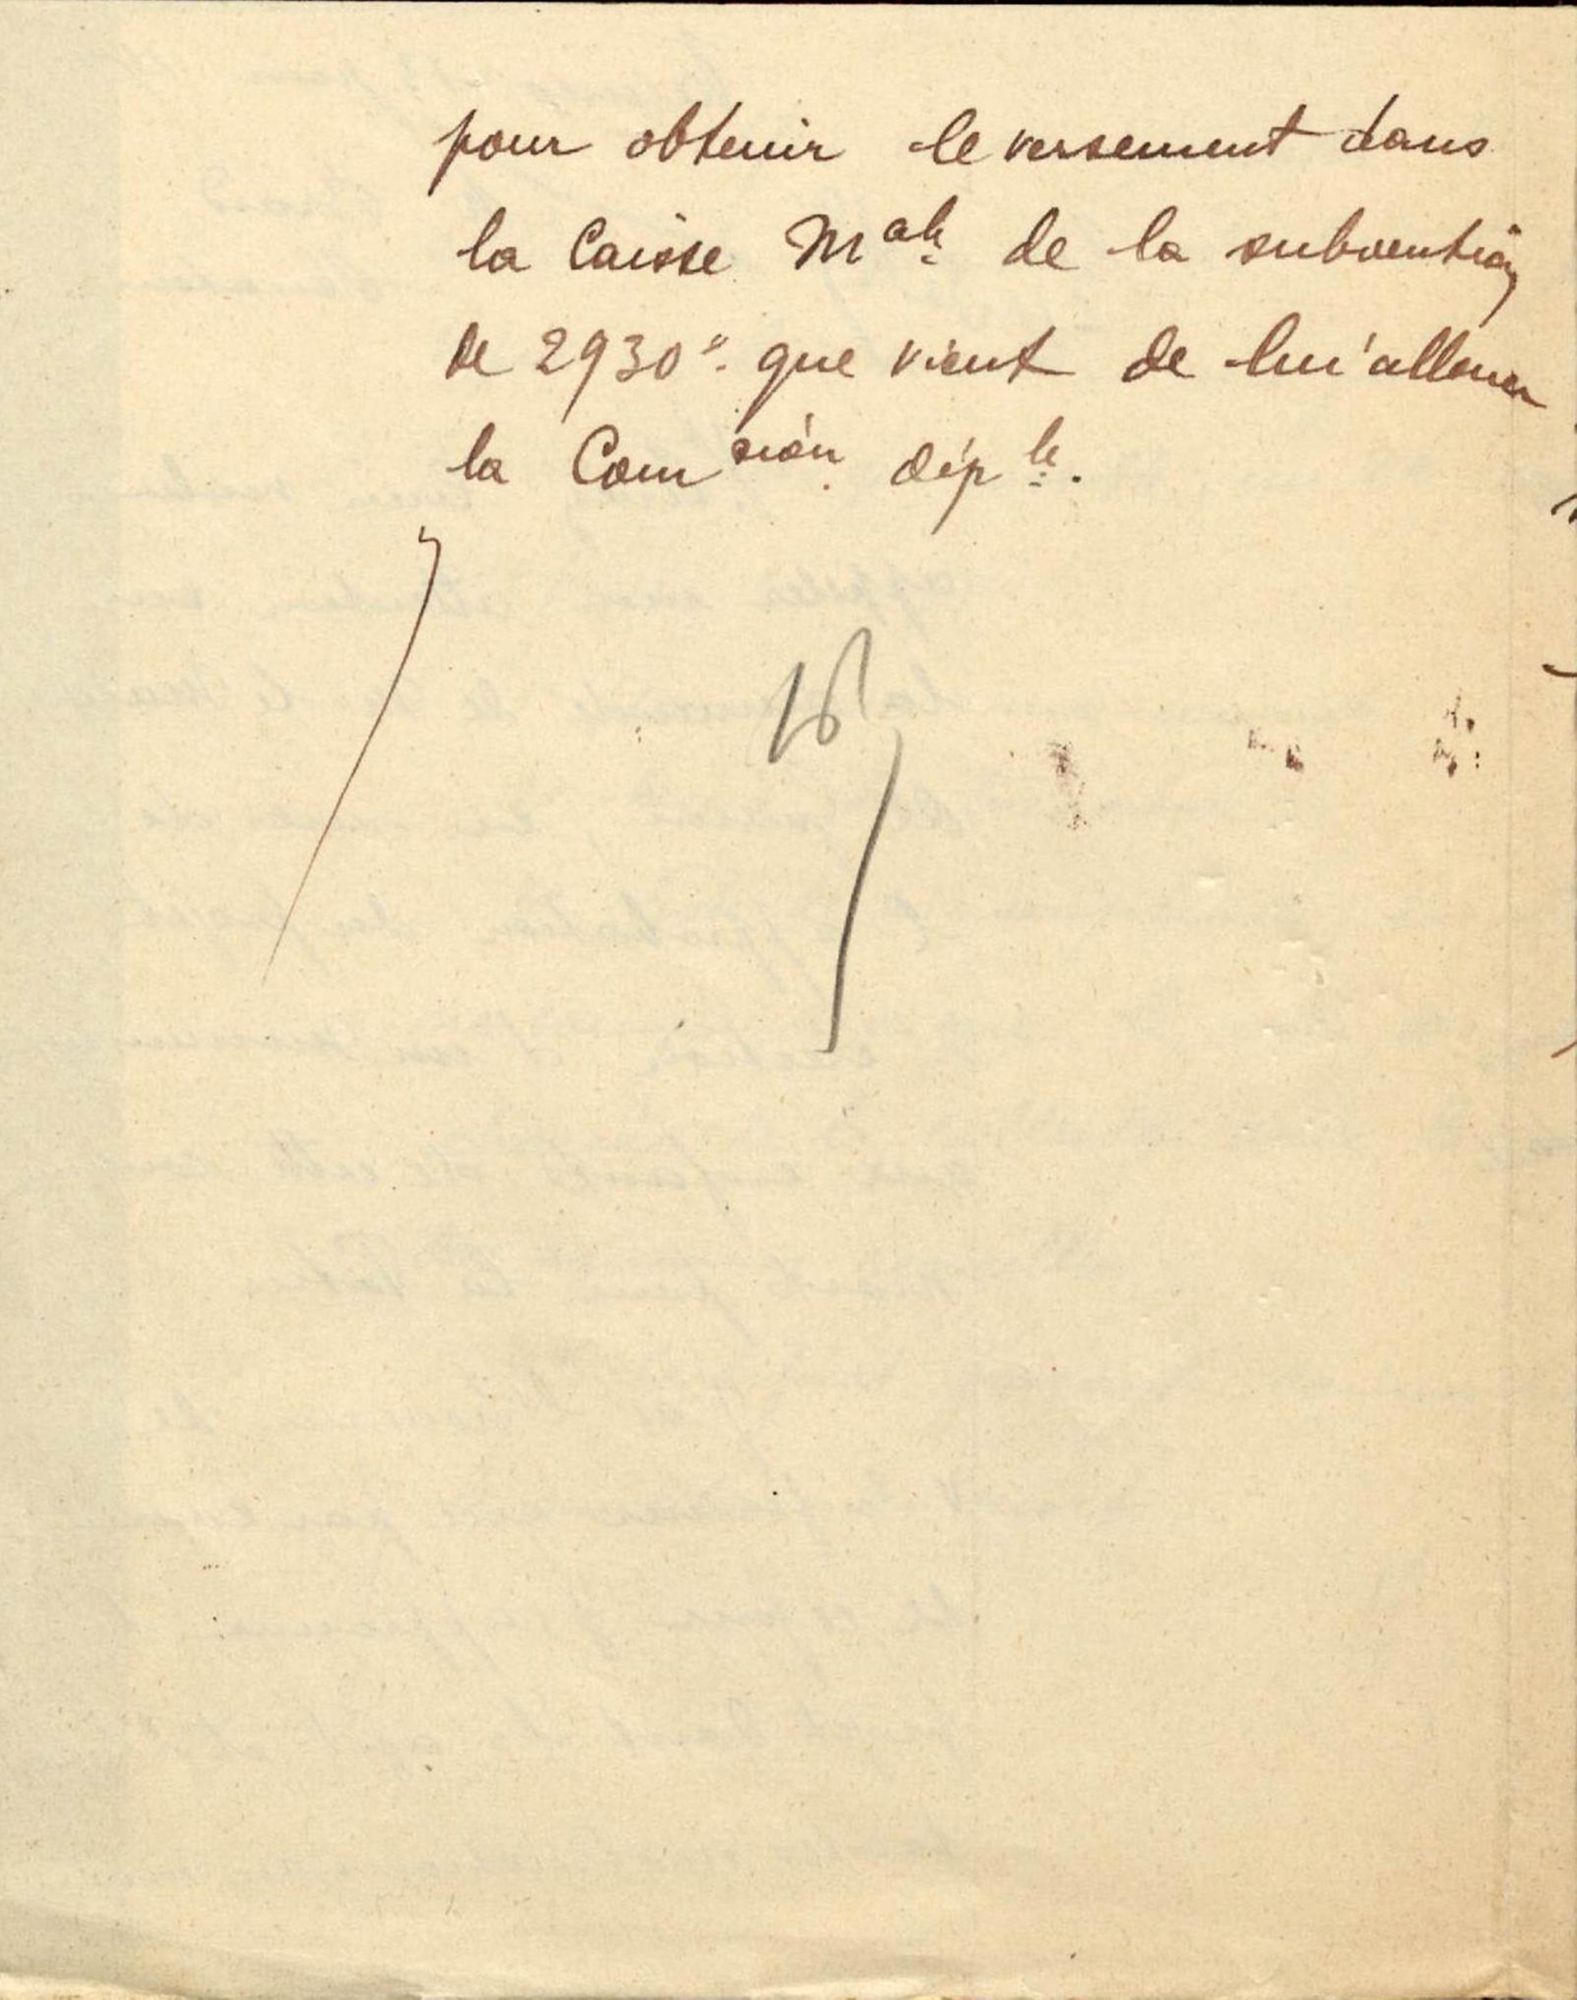 pour obtenir le versement dans
la Caisse Male de la subvention
de 2930". que vient de lui allouer
la Comsion. dép le.